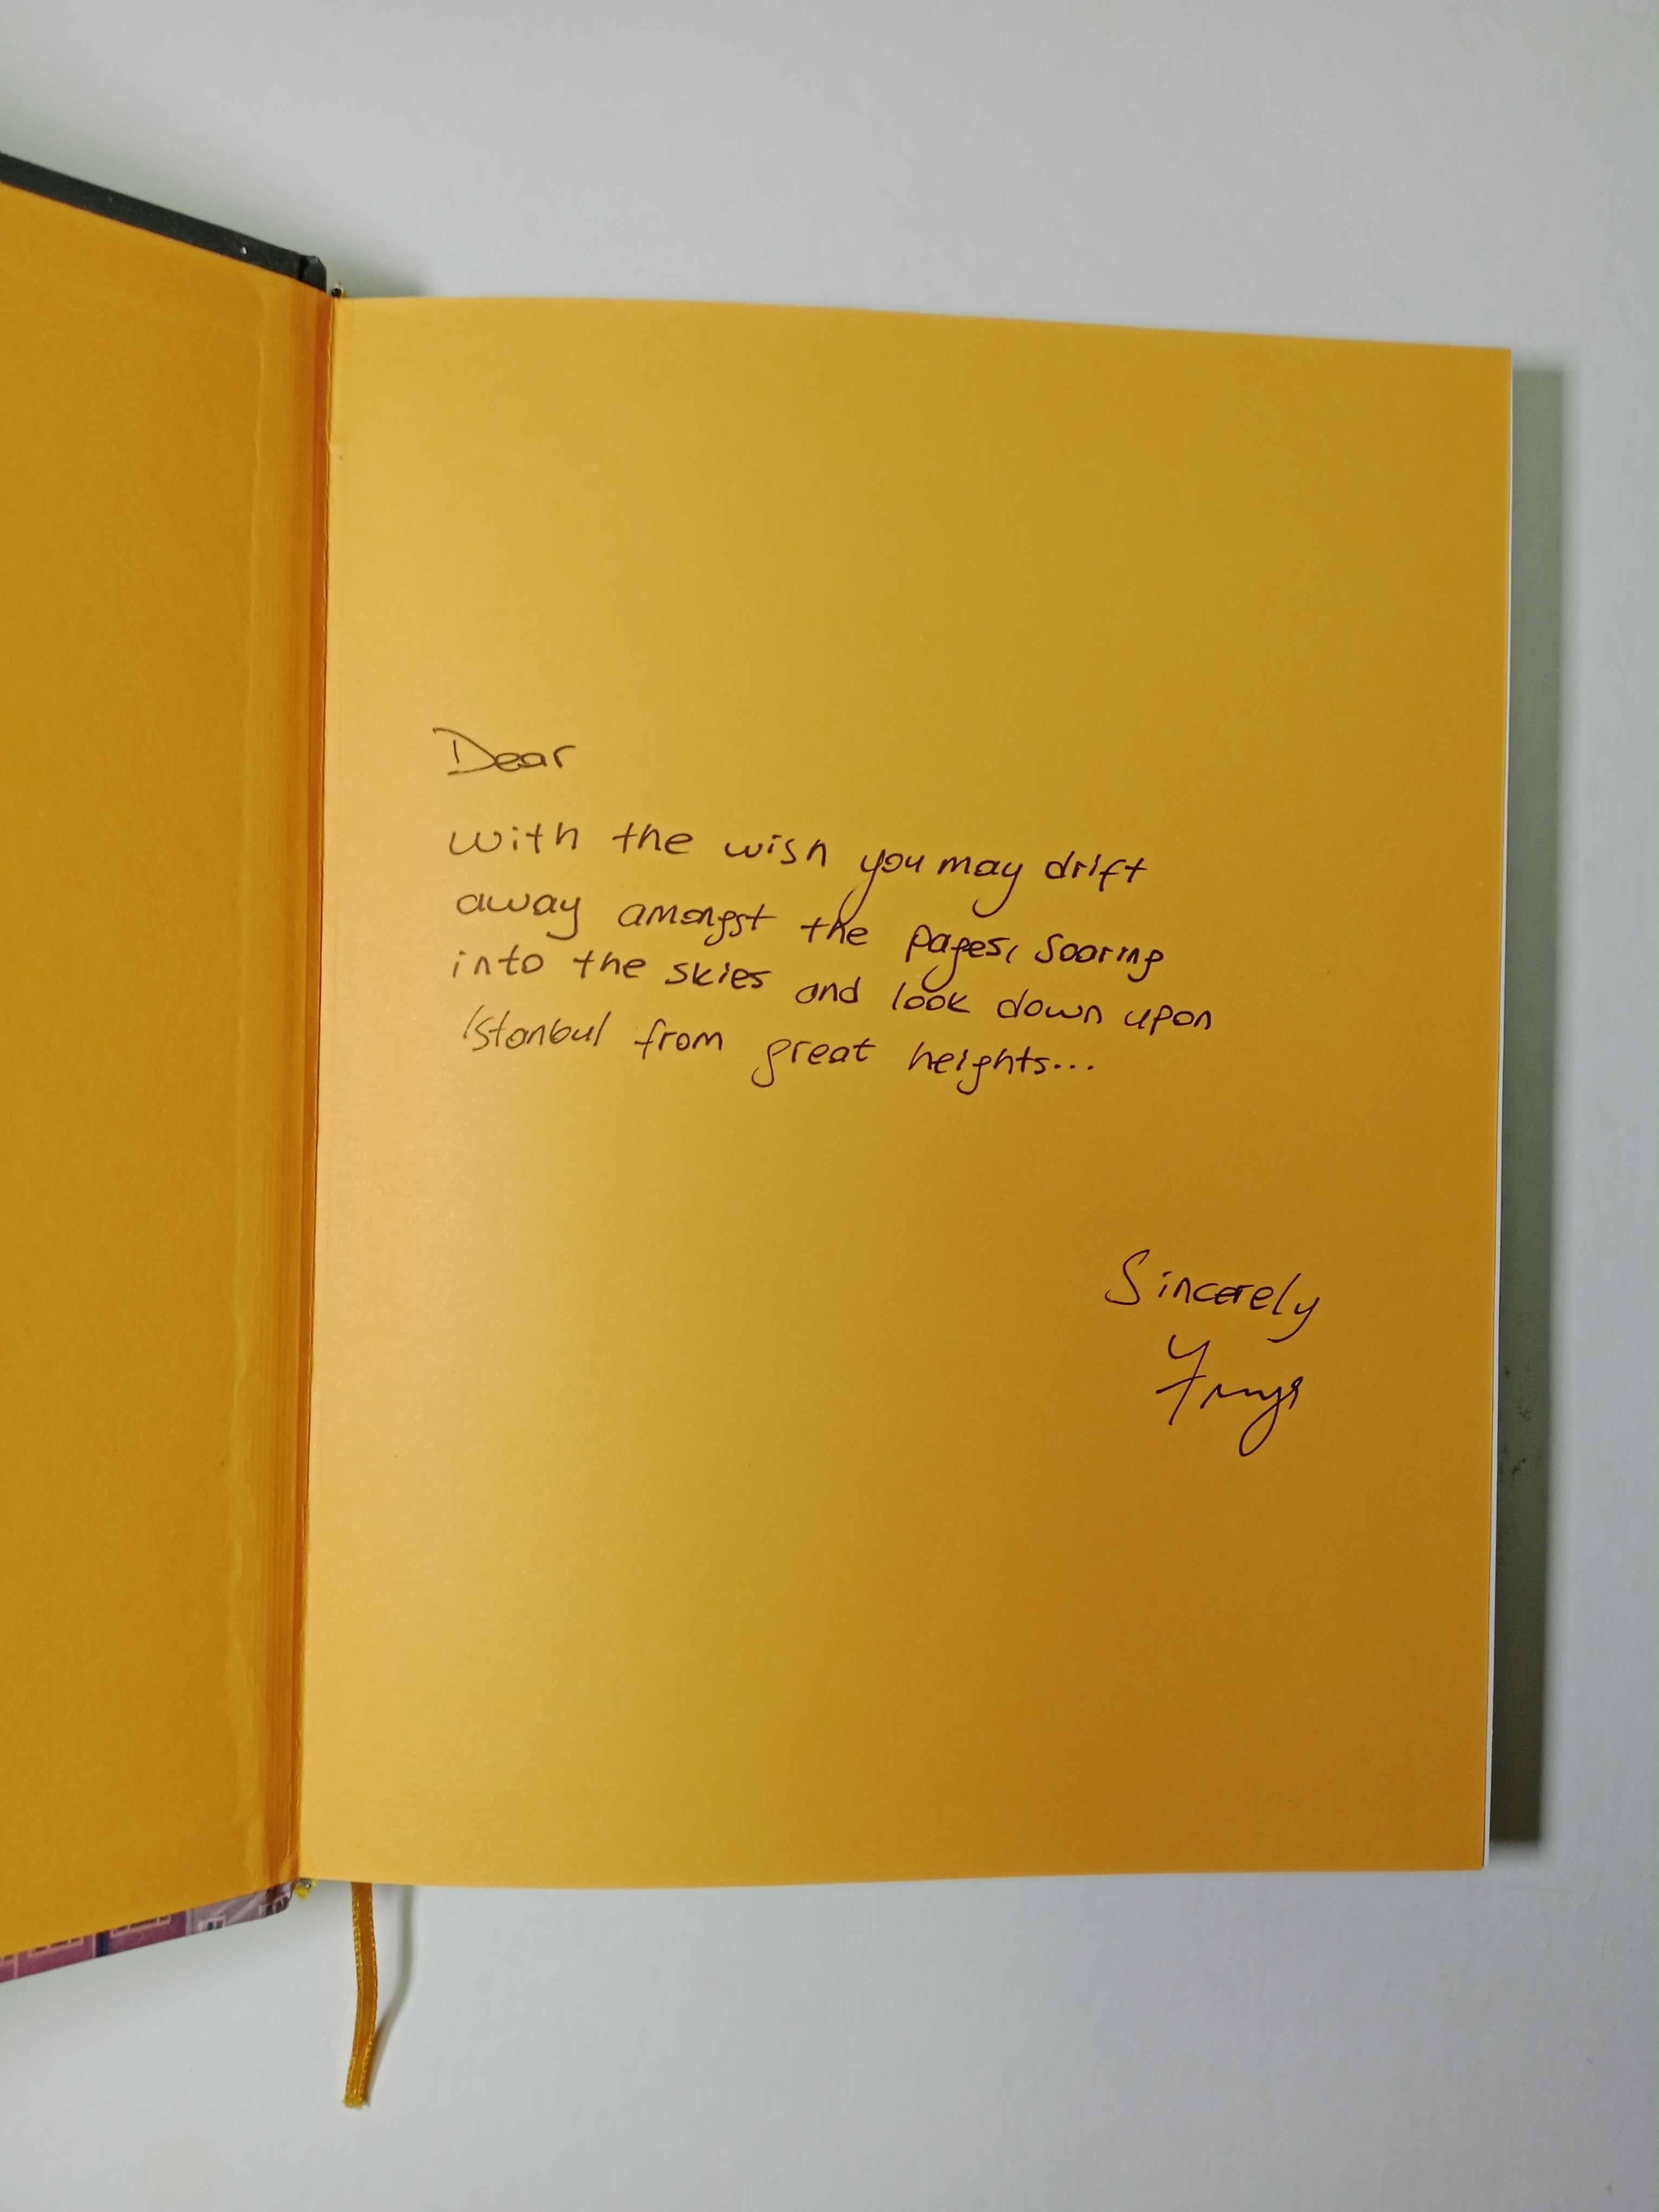 Dear
with the wish you may drift
away amongst the pages, soaring
into the skies and look down upon
Istanbul from great heights...
Sincerely